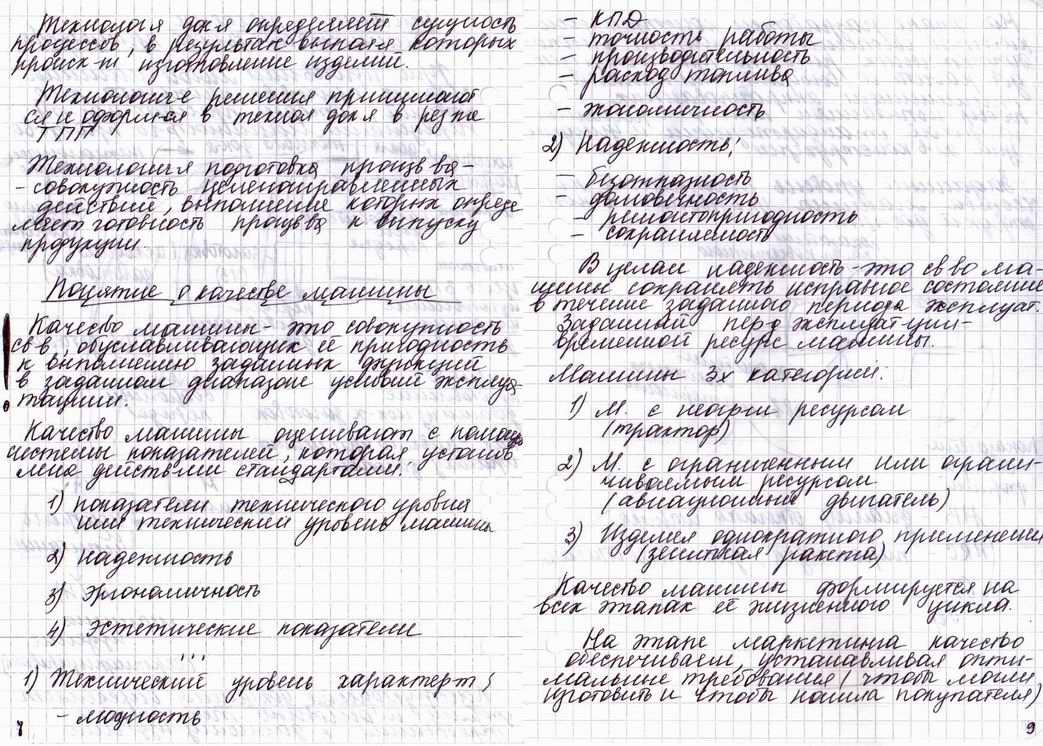 Технология док-я определяет сущность
процессов, в результатах выполн-я которых
происх-т изготовление изделий.
Технологич-е решения принимают
ся и оформл-я в технол док-я в рез-те
ТПП
Технология подготовка произв-ва -
- совокупность целенаправленных
действий, выполнение которых опреде
ляет готовность произ-ва к выпуску
продукции.
Понятие о качестве машины
Качество машины - это совокупность
св-в, обуславливающих её пригодность
к выполнению заданных функций
в заданном диапазоне условий эксплуа-
тации.
Качество машины оценивают с помощью
системы показателей, которая установ
лена действ-ми стандартами:
1) показатели технического уровня
или технический уровень машины
2) надежность
3) Эргономичность
4) эстетические показатели
...
1) Технический уровень характер-т:
- мощность
7
- КПД
- точность работы
- производительность
- расход топлива
- экономичность
2) Надежность:
- безотказность
- долговечность
- ремонтопригодность
- сохраняемость
В целом надежность - это св-во ма-
шины сохранять исправное состояние
в течение заданного периода эксплуат.
Заданный пер-д эксплуат-ции -
временной ресурс машины.
Машины 3х категорий:
1) М. с неогран ресурсом
(трактор)
2) М. с ограниченным или ограни-
чиваемым ресурсом
(авиационный двигатель)
3) Изделия однократного применения
(зенитная ракета)
Качество машины формируется на
всех этапах её жизненного цикла.
На этапе маркетинга качество
обеспечиваем, устанавливая опти-
мальные требования (чтобы могли
изготовить и чтобы нашла покупателя)
9